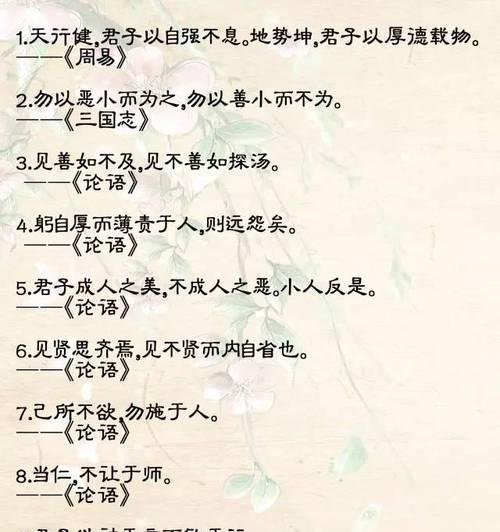 1.天行健,君子以自强不息。地势坤,君子以厚德载物。
——《周易》
2.勿以恶小而为之,勿以善小而不为。
——《三国志》
3.见善如不及,见不善如探汤。
——《论语》
4.躬自厚而薄责于人,则远怨矣。
——《论语》
5.君子成人之美,不成人之恶。小人反是。
——《论语》
6.见贤思齐焉,见不贤而内自省也。
——《论语》
7.己所不欲,勿施于人。
——《论语》
8.当仁,不让于师。
——《论语》